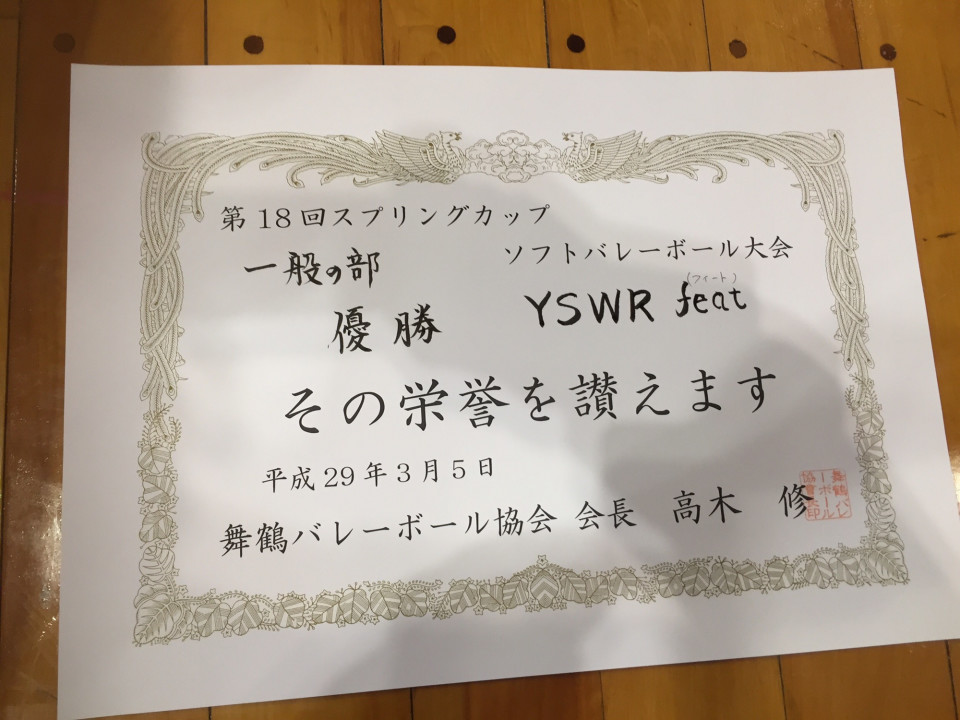 第18回スプリングカップ
ソフトバレーボール大会
一般の部
優勝
(フィート)
YSWR feat
その栄誉を讃えます
平成29年3月5日
舞鶴バレーボール協会 会長 高木 修
舞鶴バレーボール協会